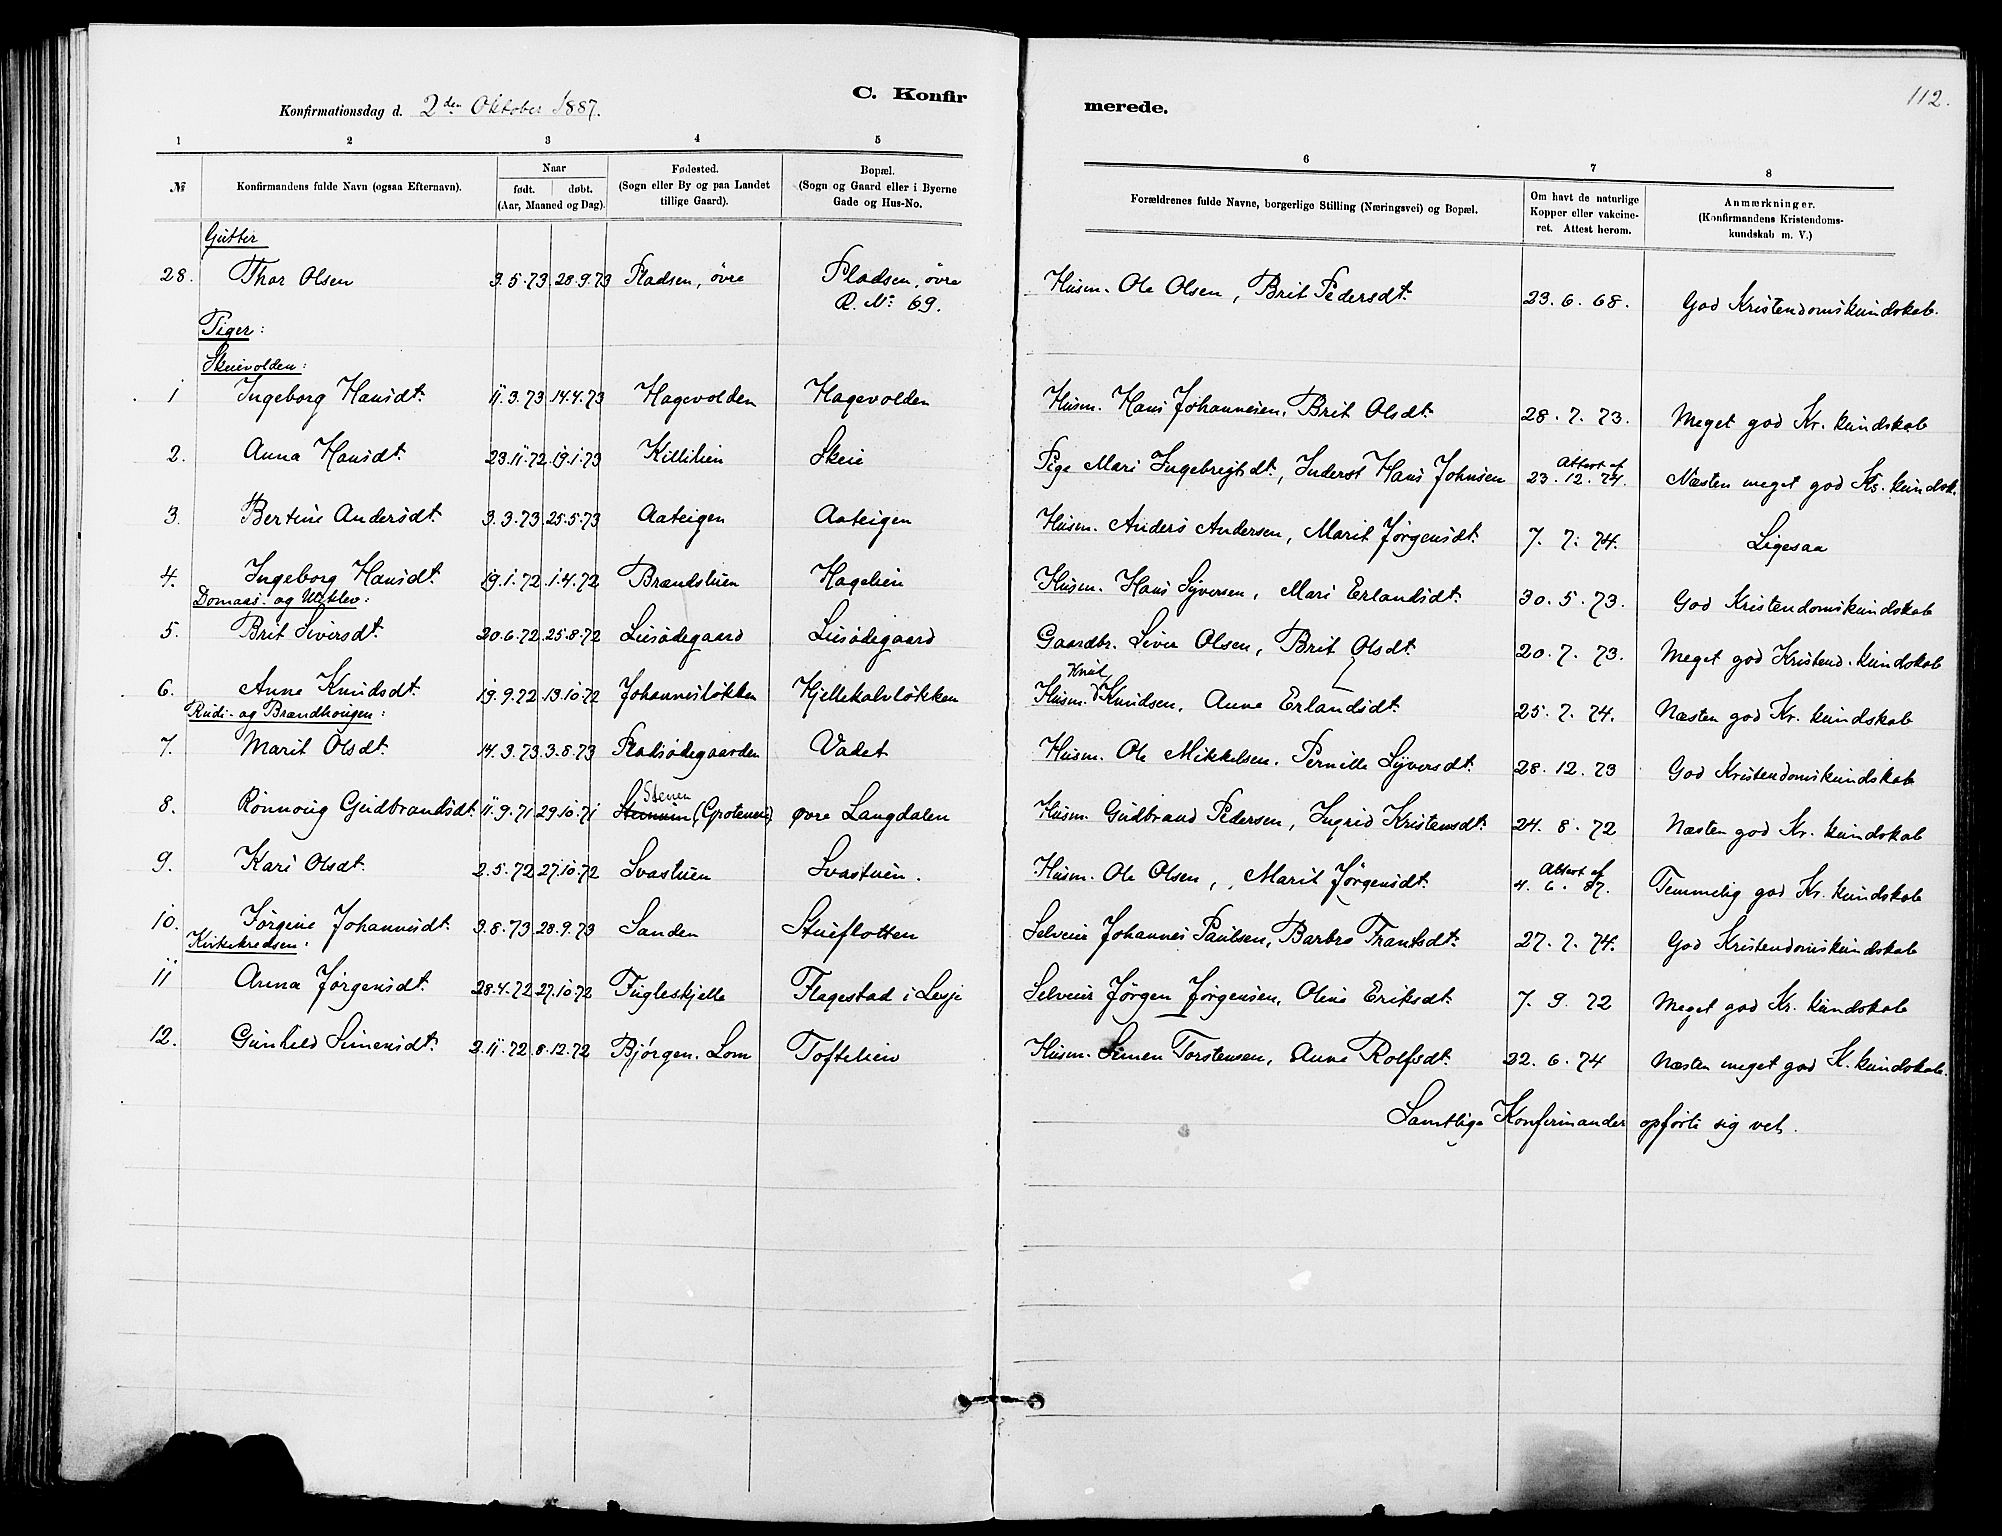 112.
C. Konfirmerede.
Konfirmationsdag d. 2den Oktober 1887.
1 2 3 4 5 6 7 8
№ Konfirmandens fulde Navn (ogsaa Efternavn). Naar født. døbt. (Aar, Maaned og Dag). Fødested. (Sogn eller By og paa Landet tillige Gaard). Bopæl. (Sogn og Gaard eller i Byerne Gade og Hus-No. Forældrenes fulde Navne, borgerlige Stilling (Næringsvei) og Bopæl. Om havt de naturlige Kopper eller vakcineret. Attest herom. Anmærkninger. (Konfirmandens Kristendomskundskab m. V.)
Gutter
28. Thor Olsen 3.5.73 28.9.73 Pladsen, øvre Pladsen, øvre R. No: 69. Husm. Ole Olsen, Brit Pedersdt. 23.6.68. God Kristendomskundskab.
Piger:
Skeievolden:
1 Ingeborg Hansdt. 11.3.73 14.4.73 Hagevolden Hagevolden Husm. Hans Johannesen, Brit Olsdt. 28.7.73. Meget god Kr. kundskab
2. Anna Hansdt. 23.11.72 19.1.73 Killilien Skeie Pige Mari Ingebrigtdt., Inderst Hans Johnsen Attest af 23.12.74. Næsten meget god Kr. kundsk.
3. Bertine Andersdt. 3.3.73 25.5.73 Aateigen Aateigen Husm. Anders Andersen, Marit Jørgensdt. 7.7.74. Ligesaa
4. Ingeborg Hansdt. 19.1.72 1.4.72 Brændstuen Hagelien Husm. Hans Syversen, Mari Erlandsdt. 30.5.73. God Kristendomskundskab
Domaas- og Utklev:
5. Brit Siversdt. 20.6.72 25.8.72 Liesødegaard Liesødegaard Gaardbr. Siver Olsen, Brit Olsdt. 20.7.73. Meget god Kristend. kundskab
6. Anne Knudsdt. 19.9.72 13.10.72 Johannesløkken Hjellekalvløkken Husm. Knut Knudsen, Anne Erlandsdt. 25.7.74. Næsten god Kr. kundskab
Rudi- og Brændhougen:
7. Marit Olsdt. 14.3.73 3.8.73 Pladsødegaarden Vadet Husm. Ole Mikkelsen, Pernille Syversdt. 28.12.73 God Kristendomskundskab
8. Rønnoug Gudbrandsdt. 11.9.71 29.10.71 Stenen (Grotenuen) øvre Langdalen Husm. Gudbrand Pedersen, Ingrid Kristensdt. 24.8.72 Næsten god Kr. kundskab
9. Kari Olsdt. 2.5.72 27.10.72 Svastuen Svastuen. Husm. Ole Olsen, Marit Jørgensdt. Attest af 4.6.87. Temmelig god Kr. kundskab
10. Jørgine Johannesdt. 3.8.73 28.9.73 Sanden Stueflotten Selveier Johannes Paulsen, Barbro Frantsdt. 27.7.74. God Kristendomskundskab
Kirkekredsen:
11 Anna Jørgensdt. 28.4.72 27.10.72 Fugleskjelle Flagestad i Lesje Selveier Jørgen Jørgensen, Oline Eriksdt. 7.9.72 Meget god Kr. kundskab
12. Gunhild Simensdt. 2.11.72 8.12.72 Bjørgen. Lom Toftelien Husm. Simen Torstensen, Anne Rolfsdt. 22.6.74 Næsten meget god K. kundskab.
Samtlige Konfirmander opførte sig vel.